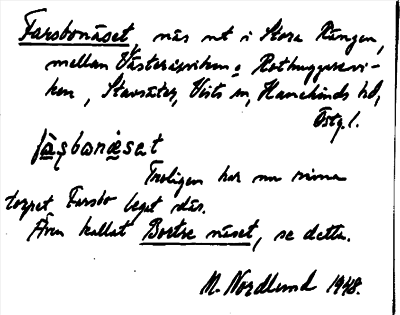 Farsbonäset näs nt i Stora Rängen,
mellan Västeräsviken o Rothuggarevi-
ken, Stavsäter, Vists sn, Hanekinds hd,
Östg. l.
fàṣbonǽsat
Troligen har nu rivna
torpet Farsbo legat där.
Även kallat Bortre näset, se detta.
M. Nordlund 1948.